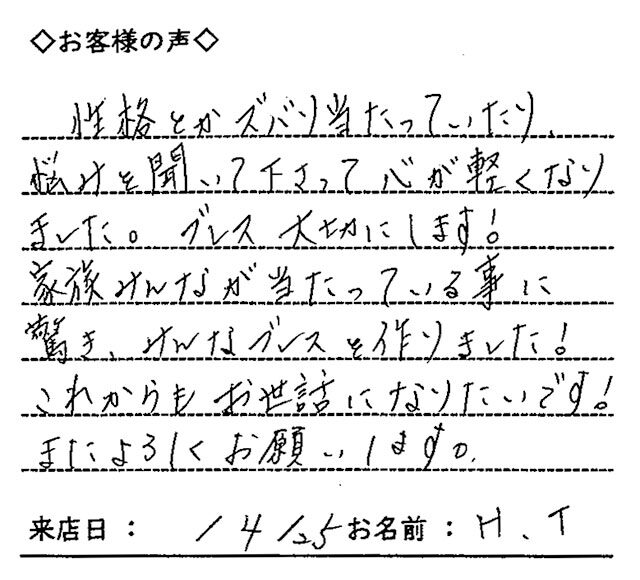 ◇お客様の声◇
性格とかズバリ当たっていたり、
悩みを聞いて下さって心が軽くなり
ました。ブレス大切にします!
家族みんなが当たっている事に
驚き、みんなブレスを作りました!
これからもお世話になりたいです!
またよろしくお願いします。
来店日: 14/25 お名前: H.T